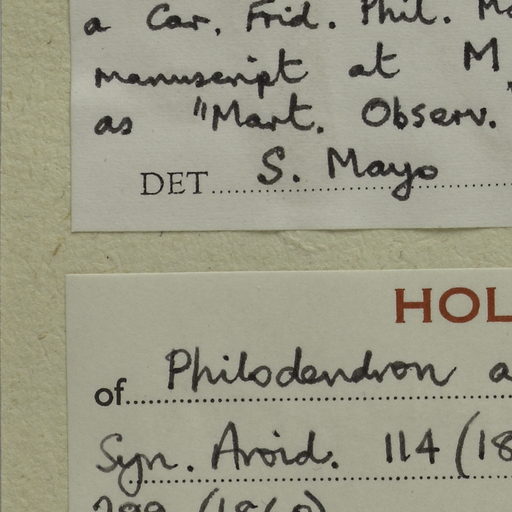 a Car. Frid. Phil. Ma
manuscript at M
as "Mart. Observ."
DET S. Mayo
HOL
of Philodendron a
Syn. Aroid. 114 (18
299 (1860)